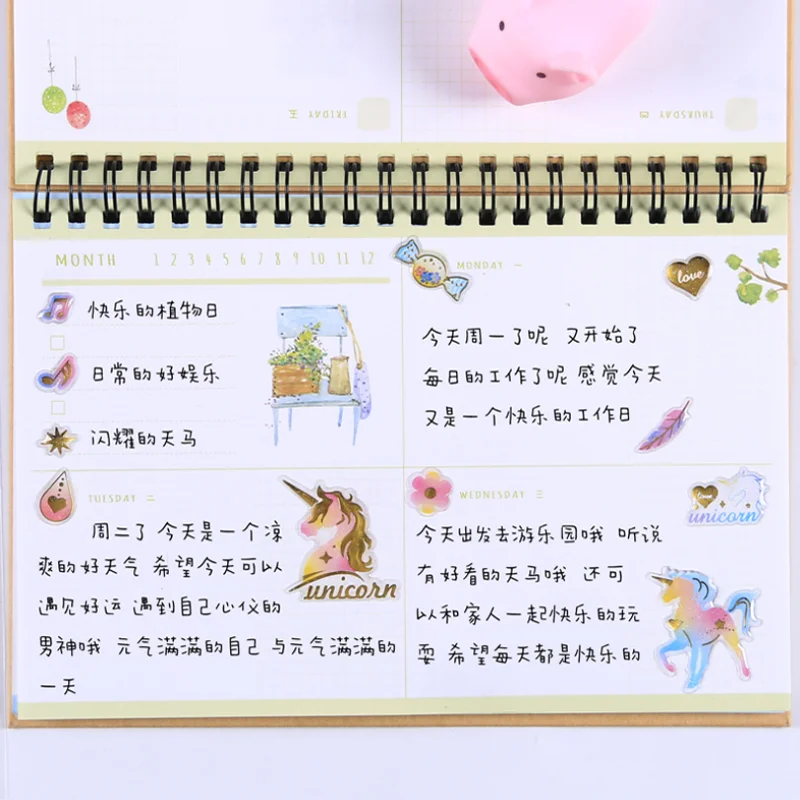 FRIDAY 五
THURSDAY 四
MONTH 1 2 3 4 5 6 7 8 9 10 11 12
快乐的植物日
日常的好娱乐
闪耀的天马
MONDAY 一
love
今天周一了呢 又开始了
每日的工作了呢 感觉今天
又是一个快乐的工作日
TUESDAY 二
周二了 今天是一个凉
爽的好天气 希望今天可以
遇见好运 遇到自己心仪的
男神哦 元气满满的自己 与元气满满的
一天
unicorn
WEDNESDAY 三
love
unicorn
今天出发去游乐园哦 听说
有好看的天马哦 还可
以和家人一起快乐的玩
耍 希望每天都是快乐的